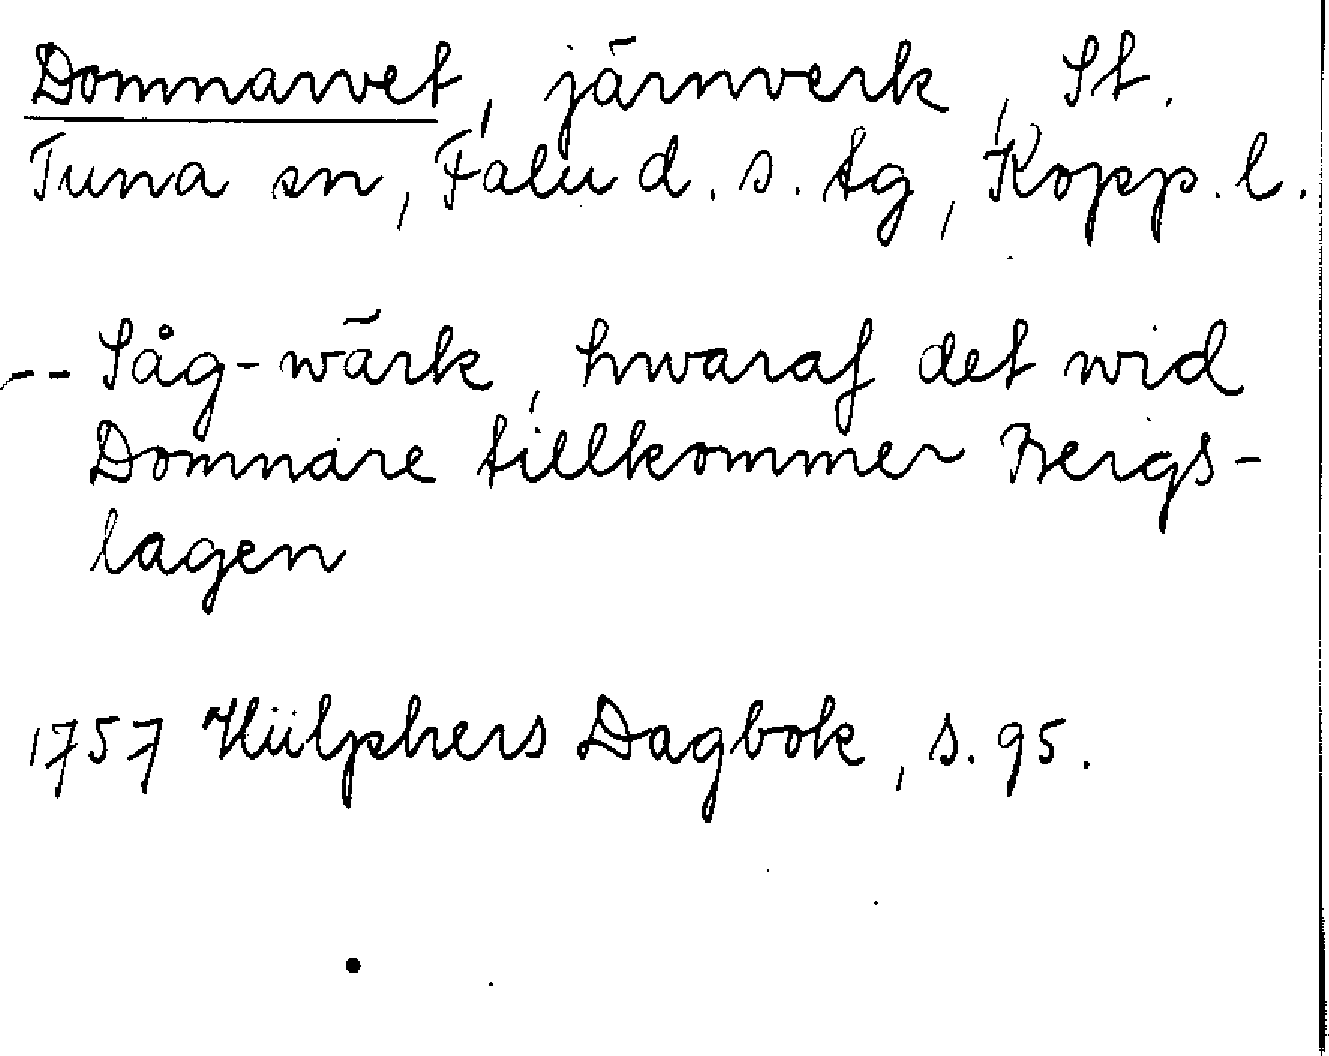 Domnarvet, järnverk, St.
Tuna sn, Falu d. s. tg, Kopp. l.
-- Såg-wärk, hwaraf det wid
Domnare tillkommer Bergs-
lagen
1757 Hülphers Dagbok, s. 95.